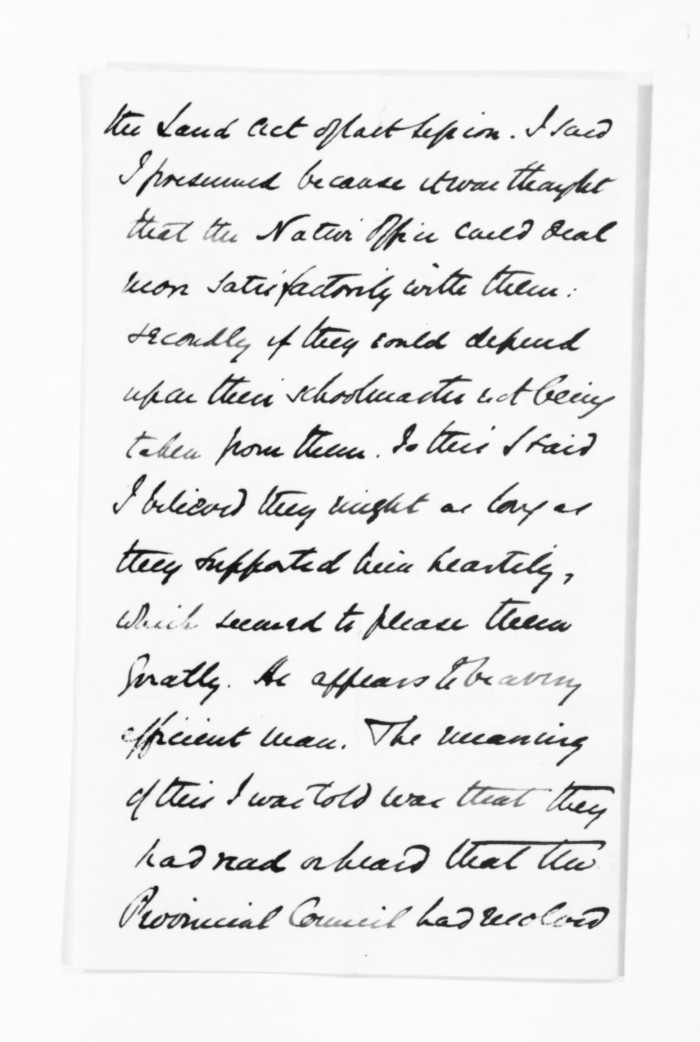 the Land Act of last Session. I said
I presumed because it was thought
that the Native Office could deal
more satisfactorily with them:
secondly if they could depend
upon their schoolmaster not being
taken from them. To this I said
I believed they might as long as
they supported him heartily,
which seemed to please them
greatly. He appears to be a very
efficient man. The meaning
of this I was told was that they
had read or heard that the
Provincial Council had resolved